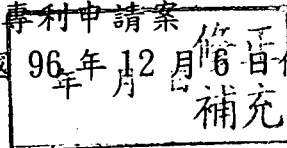 專利申請案
96年12月6日
年 月 日
修正
補充